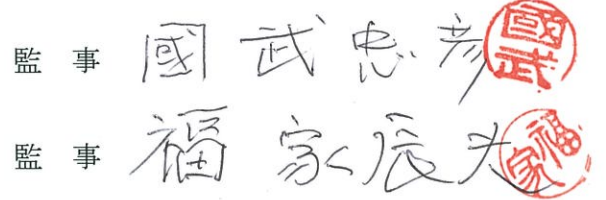 監事 國武忠彦 國武
監事 福家辰夫 福家